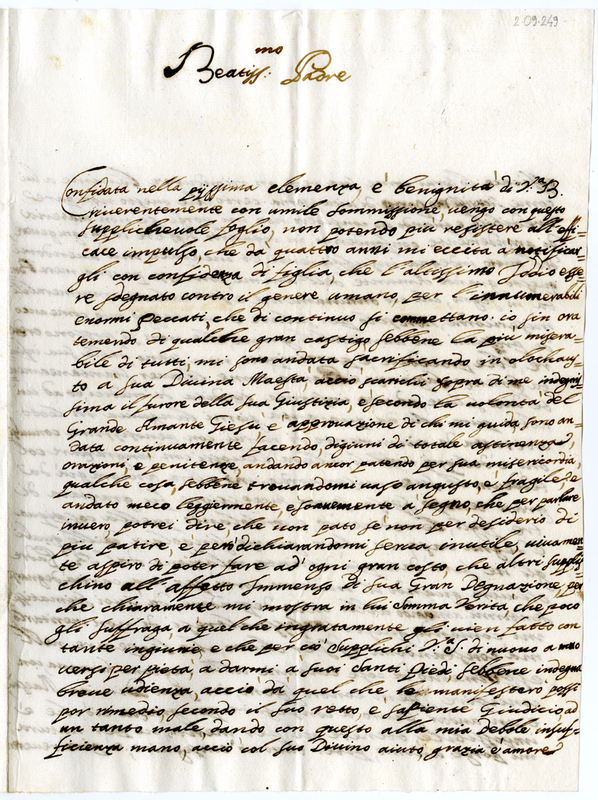 2-09-249
Beatiss:mo Padre
Confidata nella pijssima clemenza, e benignità di V.ra B.
riuerentemente con umile sommissione, uengo con questo
supplicheuole foglio, non potendo più resistere all'effi=
cace impulso, che da quattro anni mi eccita à notificar=
gli con confidenza di figlia, che l'altissimo Iddio esse
re sdegnato contro il genere umano, per l'innumerabili
enormi peccati, che di continuo si commettano. io sin ora
temendo di qualche gran castigo sebbene la più misera=
bile di tutti, mi sono andata sacrificando in olochaus=
to a sua Divina Maestà, acciò scarichi sopra di me indegnis
sima il furore della sua Giustizia, e secondo la uolontà del
Grande Amante Giesù e aprouazione di chi mi guida, sono an=
data continuamente facendo, digiuni di totale astinenza,
orazioni, e penitenze, andando ancor patendo per sua misericordia,
qualche cosa, sebbene trouandomi uaso angusto, e fragile, è
andato meco leggiermente, e soauemente à segno, che per parlare
in uero, potrei dire, che non pato se non per desiderio di
più patire, e però dichiarandomi serua inutile, uiuamen=
te aspiro di poter fare ad ogni gran costo, che altri suppli
chino all'affetto Immenso di sua Gran Degnazione, per
che chiaramente mi mostra in lui somma Verità, che poco
gli suffraga, a quel che ingratamente gli uien fatto con
tante ingiurie, e che per ciò supplichi V.ra S. di nuouo a mo
uersi per pietà, a darmi a suoi santi Piedi sebbene indegna
breue udienza, acciò da quel che le manifesterò possi
por rimedio, secondo il suo retto, e sapiente Giudicio ad
un tanto male, dando con questo alla mia debole insuf=
ficienza mano, acciò col suo Diuino aiuto, grazia e amore